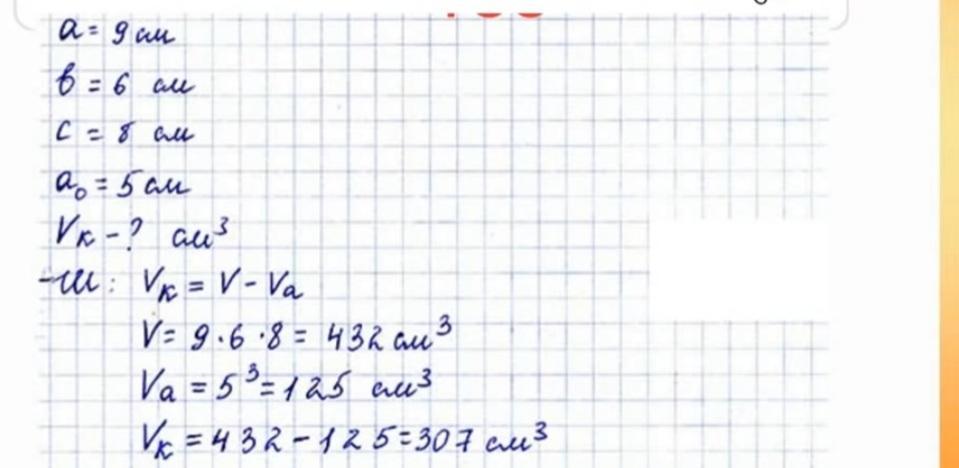 a = 9 см
в = 6 см
c = 8 см
a₀ = 5 см
Vк - ? см³
Vк = V - Va
V = 9 · 6 · 8 = 432 см³
Va = 5³ = 125 см³
Vк = 432 - 125 = 307 см³